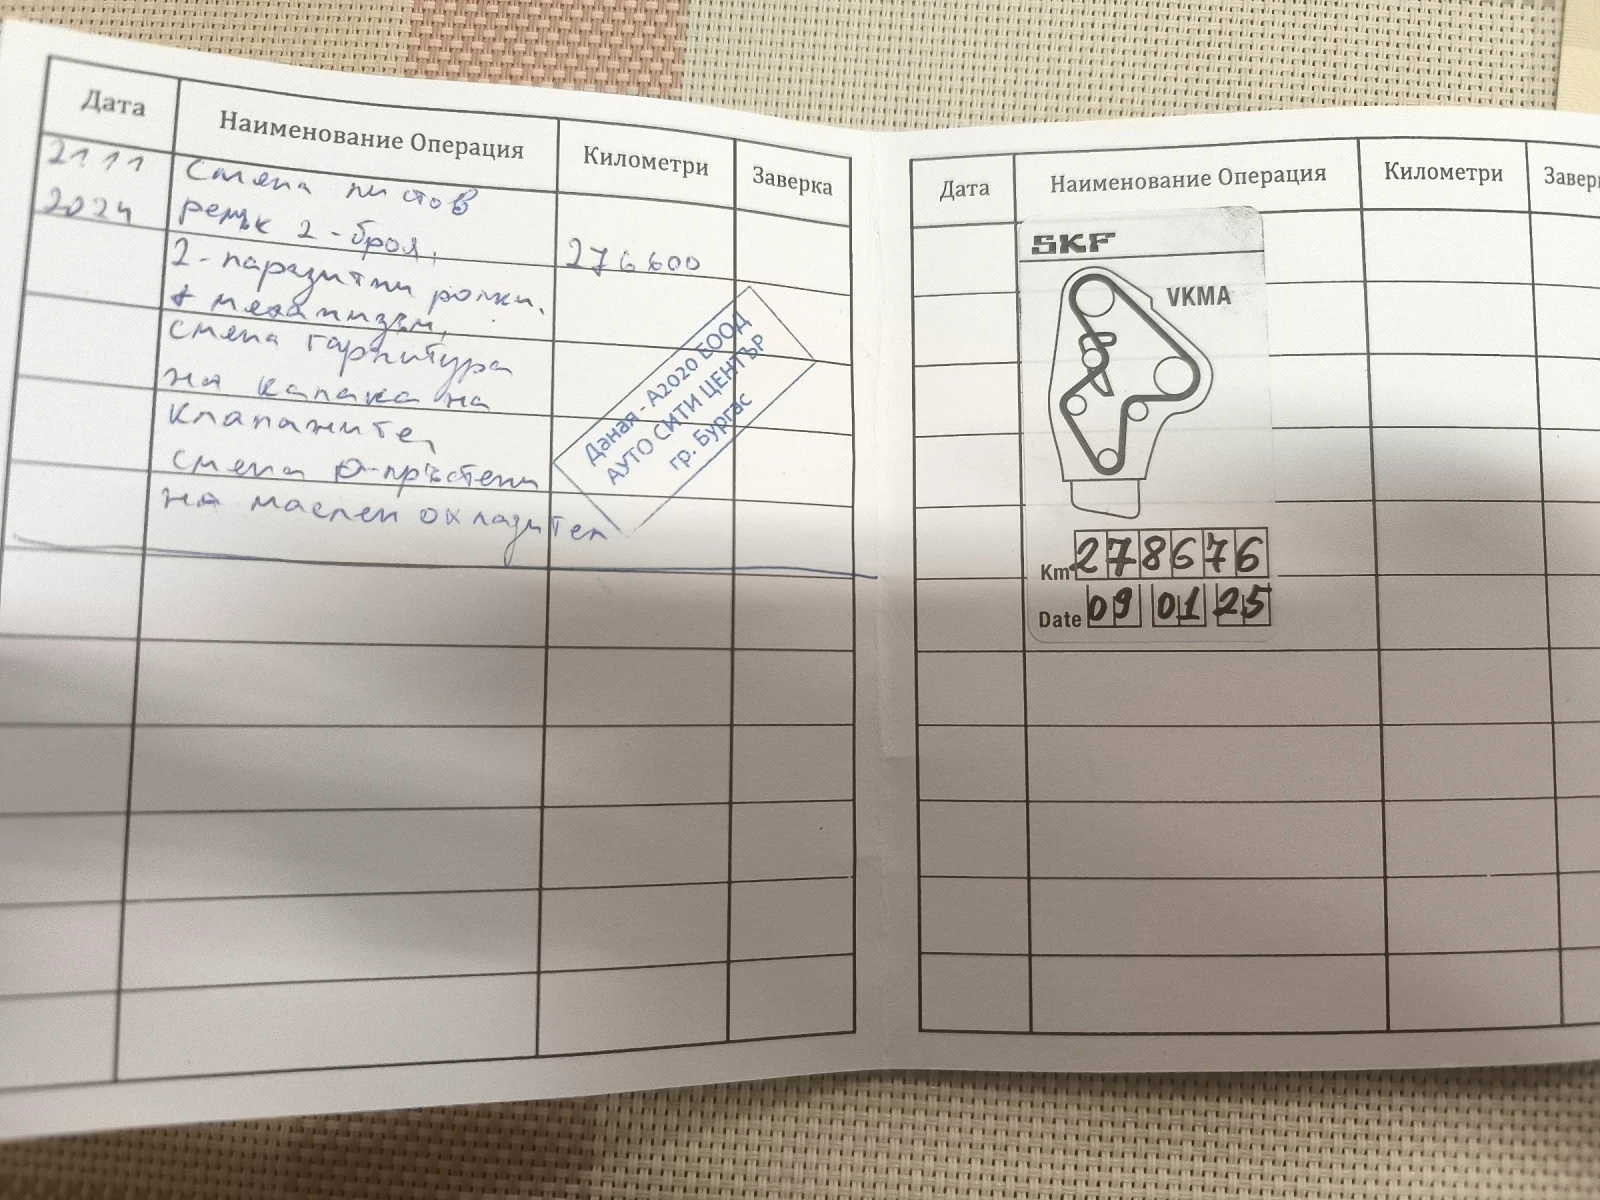 Дата Наименование Операция Километри Заверка
21 11
2024
Смяна пистов
ремък 2-броя,
276600
2-паразитни ролки.
+ механизъм,
смяна гарнитура
на капака на
клапаните,
смяна о-пръстени
на маслен охладител
Даная - А2020 ЕООД
АУТО СИТИ ЦЕНТЪР
гр. Бургас
Дата Наименование Операция Километри
SKF
VKMA
Km 278676
Date 09 01 25